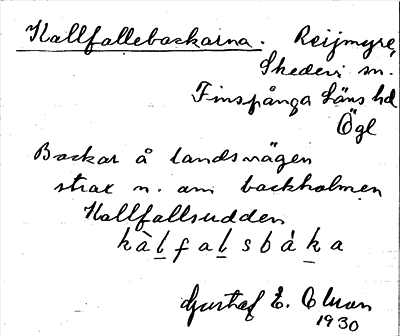 Kallfallebackarna. Reijmyre,
Skedevi sn.
Finspånga Läns hd
Ögl
Backar å landsvägen
strax n. om backholmen
Kallfallsudden
kàlfalsbàka
Gustaf E. Olson
1930